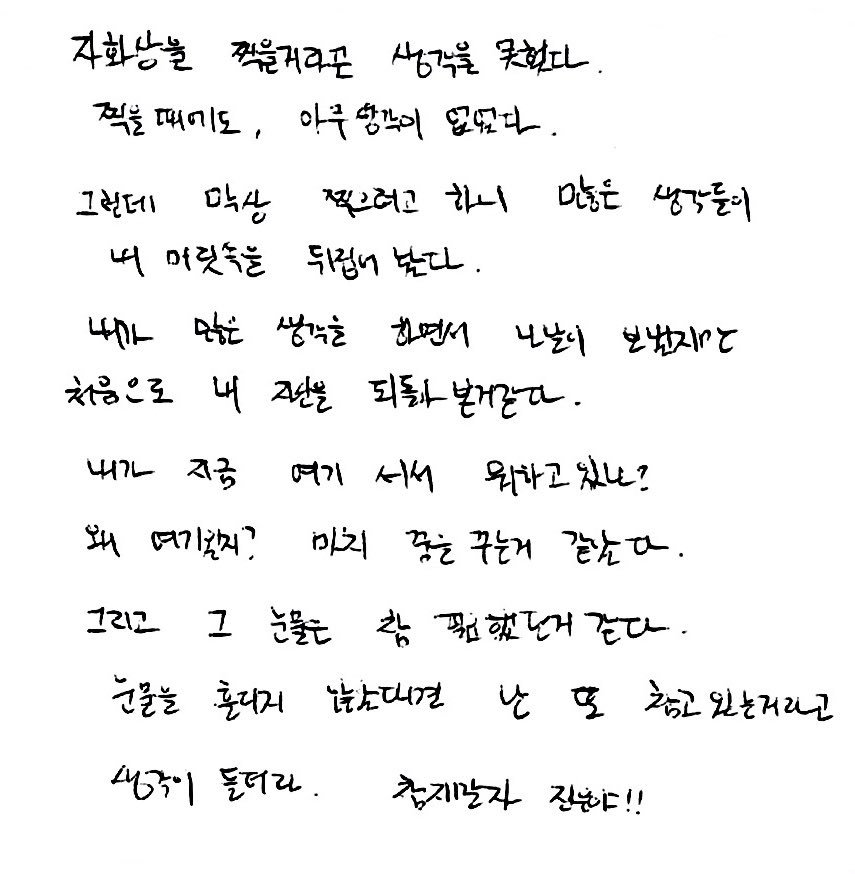 자화상을 찍을거라곤 생각을 못했다.
찍을 때에도, 아무 생각이 없었다.
그런데 막상 찍으려고 하니 많은 생각들이
내 머릿속을 뒤집어 놨다.
내가 많은 생각을 하면서 나날이 보냈지만
처음으로 내 자신을 되돌아 본거같다.
내가 지금 여기 서서 뭐하고 있나?
왜 여기있지? 마치 꿈을 꾸는거 같았다.
그리고 그 눈물은 참 필요했던거 같다.
눈물을 흘리지 않았다면 난 또 참고 있는거라고
생각이 들더라. 참지말자